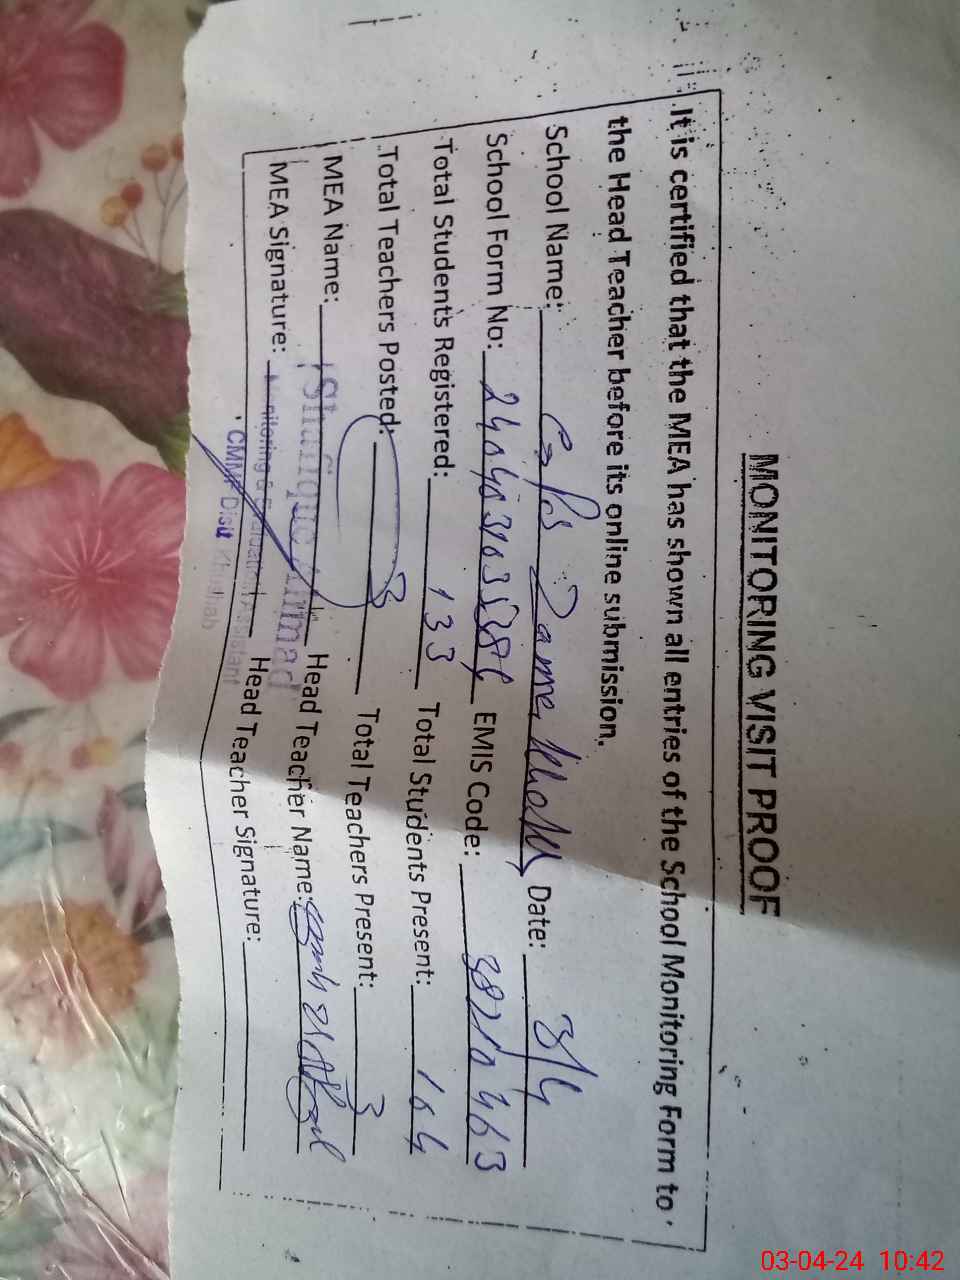 MONITORING VISIT PROOF
It is certified that the MEA has shown all entries of the School Monitoring Form to
the Head Teacher before its online submission.
School Name: Date: 3/4
School Form No: EMIS Code: 38210463
Total Students Registered: 133 Total Students Present: 104
Total Teachers Posted: 3 Total Teachers Present: 3
MEA Name: Shafique Ahmad Head Teacher Name:
MEA Signature: Head Teacher Signature:
Monitoring & Evaluation Assistant
CMMF Distt Khushab
03-04-24 10:42